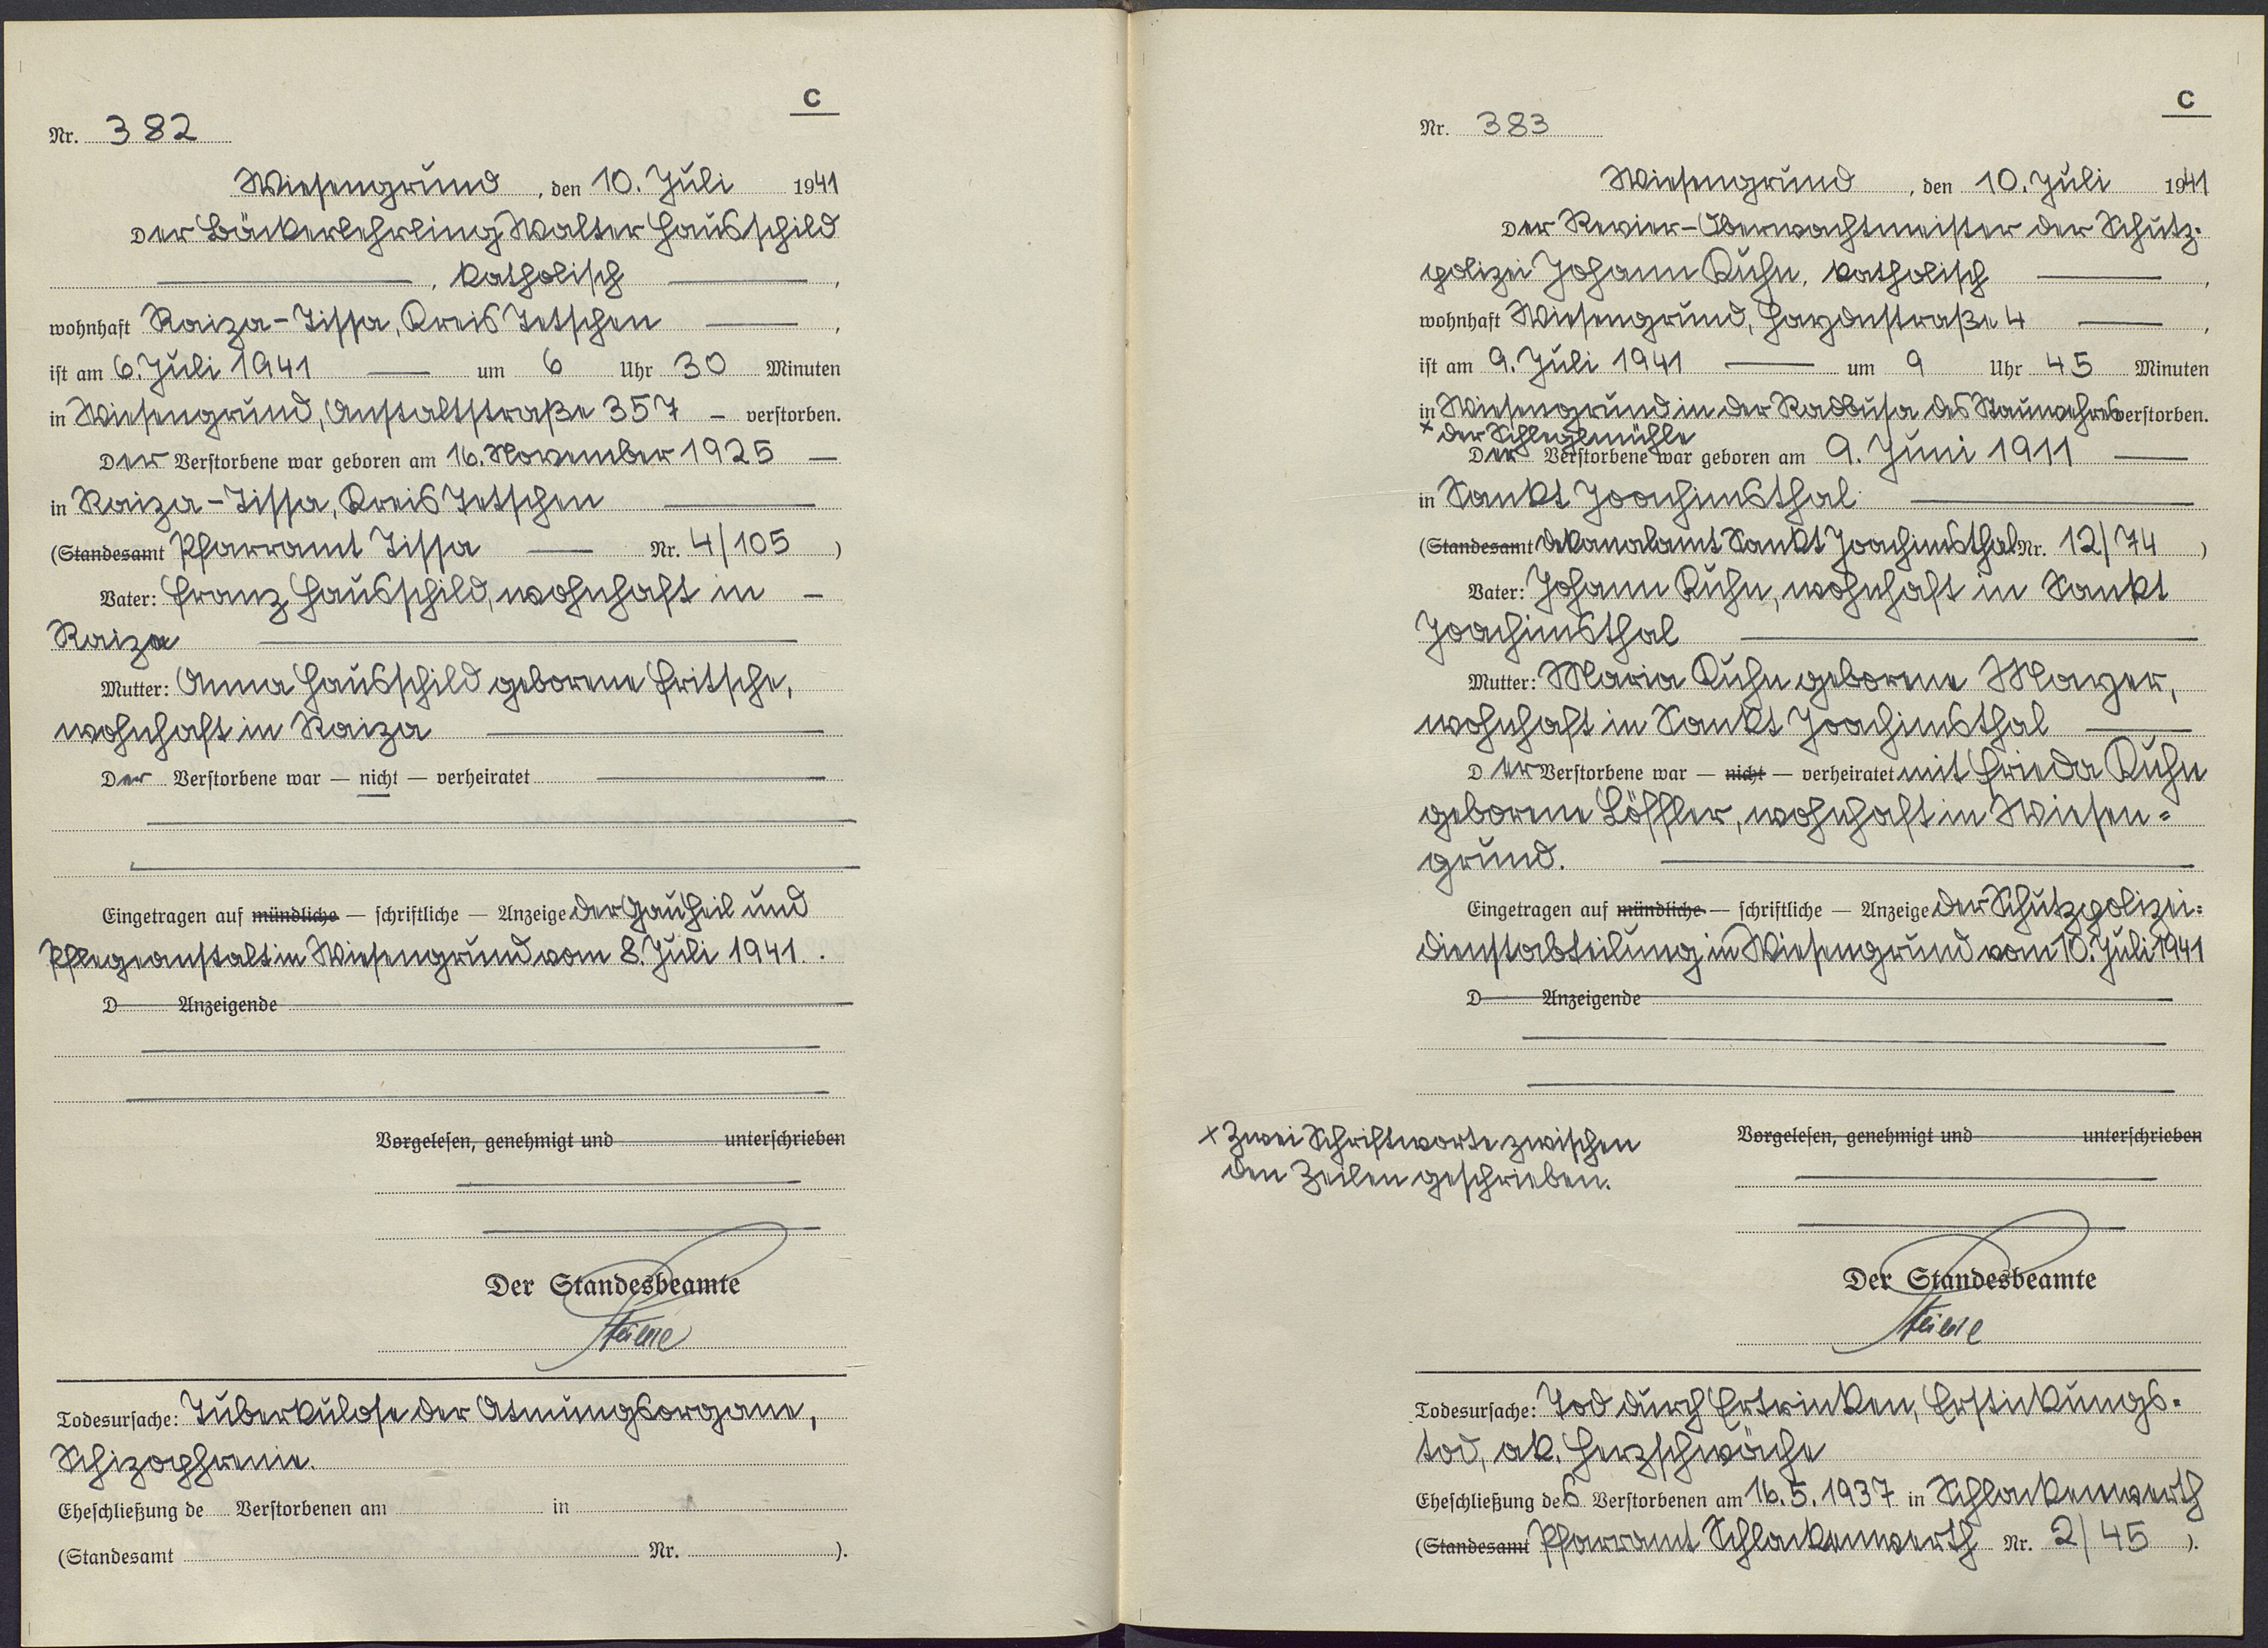 C
Nr. 382
Wiesengrund, den 10. Juli 1941
Der Bäckerlehrling Walter Hausschild
, katholisch ,
wohnhaft Raiza-Tissa, Kreis Tetschen ,
ist am 6. Juli 1941 um 6 Uhr 30 Minuten
in Wiesengrund, Anstaltstraße 357 – verstorben.
Der Verstorbene war geboren am 16. November 1925 –
in Raiza-Tissa, Kreis Tetschen
(Standesamt Pfarramt Tissa Nr. 4/105 )
Vater: Franz Hausschild, wohnhaft in –
Raiza
Mutter: Anna Hausschild geborene Fritsche,
wohnhaft in Raiza
Der Verstorbene war — nicht — verheiratet
Eingetragen auf mündliche — schriftliche — Anzeige der Gauheil und
Pflegeanstalt in Wiesengrund vom 8. Juli 1941.
D Anzeigende
Vorgelesen, genehmigt und unterschrieben
Der Standesbeamte
Todesursache: Tuberkulose der Atmungsorgane,
Schizophrenie.
Eheschließung de Verstorbenen am in
(Standesamt Nr. ).
C
Nr. 383
Wiesengrund, den 10. Juli 1941
Der Revier-Oberwachtmeister der Schutz-
polizei Johann Kuhn, katholisch ,
wohnhaft Wiesengrund, Haydnstraße 4 ,
ist am 9. Juli 1941 um 9 Uhr 45 Minuten
in Wiesengrund in der Radbusa des Stauwehres verstorben.
x der Schleglmühle
Der Verstorbene war geboren am 9. Juni 1911
in Sankt Joachimsthal
(Standesamt Dekanalamt Sankt Joachimsthal Nr. 12/74 )
Vater: Johann Kuhn, wohnhaft in Sankt
Joachimsthal
Mutter: Maria Kuhn geborene Mayer,
wohnhaft in Sankt Joachimsthal
Der Verstorbene war — nicht — verheiratet mit Frieda Kuhn
geborene Löffler, wohnhaft in Wiesen=
grund.
Eingetragen auf mündliche — schriftliche — Anzeige der Schutzpolizei=
dienstabteilung in Wiesengrund vom 10. Juli 1941
D Anzeigende
x Zwei Schriftworte zwischen
den Zeilen geschrieben.
Vorgelesen, genehmigt und unterschrieben
Der Standesbeamte
Todesursache: Tod durch Ertrinken, Erstickungs-
tod, ak. Herzschwäche
Eheschließung des Verstorbenen am 16.5.1937 in Schlackenwerth
(Standesamt Pfarramt Schlackenwerth Nr. 2/45 ).